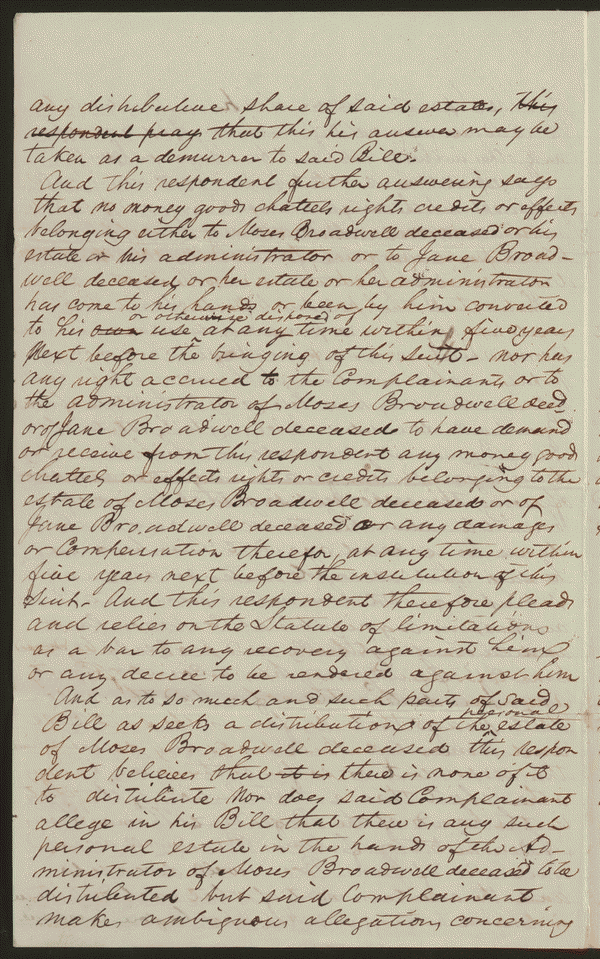 any distributive share of said estate, this
respondent prays that this his answer may be
taken as a demurrer to said Bill.
And this respondent further answering says
that no money goods chattels rights credits or effects
belonging either to Moses Broadwell deceased or his
estate or his administrator or to Jane Broad-
well deceased, or her estate or her administrator
has come to his hands or been by him converted
or otherwise disposed of
to his own use at any time within five years
next before the bringing of this suit - nor has
any right accrued to the Complainants or to
the administrator of Moses Broadwell decd.
or of Jane Broadwell deceased to have demand
or receive from this respondent any money goods
chattels or effects rights or credits belonging to the
estate of Moses Broadwell deceased or of
Jane Broadwell deceased or any damages
or Compensation therefor, at any time within
five years next before the institution of this
Suit - And this respondent therefore pleads
and relies on the Statute of limitations
as a bar to any recovery against him
or any decree to be rendered against him
And as to so much and such parts of said
personal
Bill as seeks a distribution of the estate
of Moses Broadwell deceased this respon
dent believes that it is there is none of it
to distribute Nor does said Complainant
allege in his Bill that there is any such
personal estate in the hands of the Ad-
ministrator of Moses Broadwell deceased to be
distributed but said Complainant
makes ambiguous allegations concerning